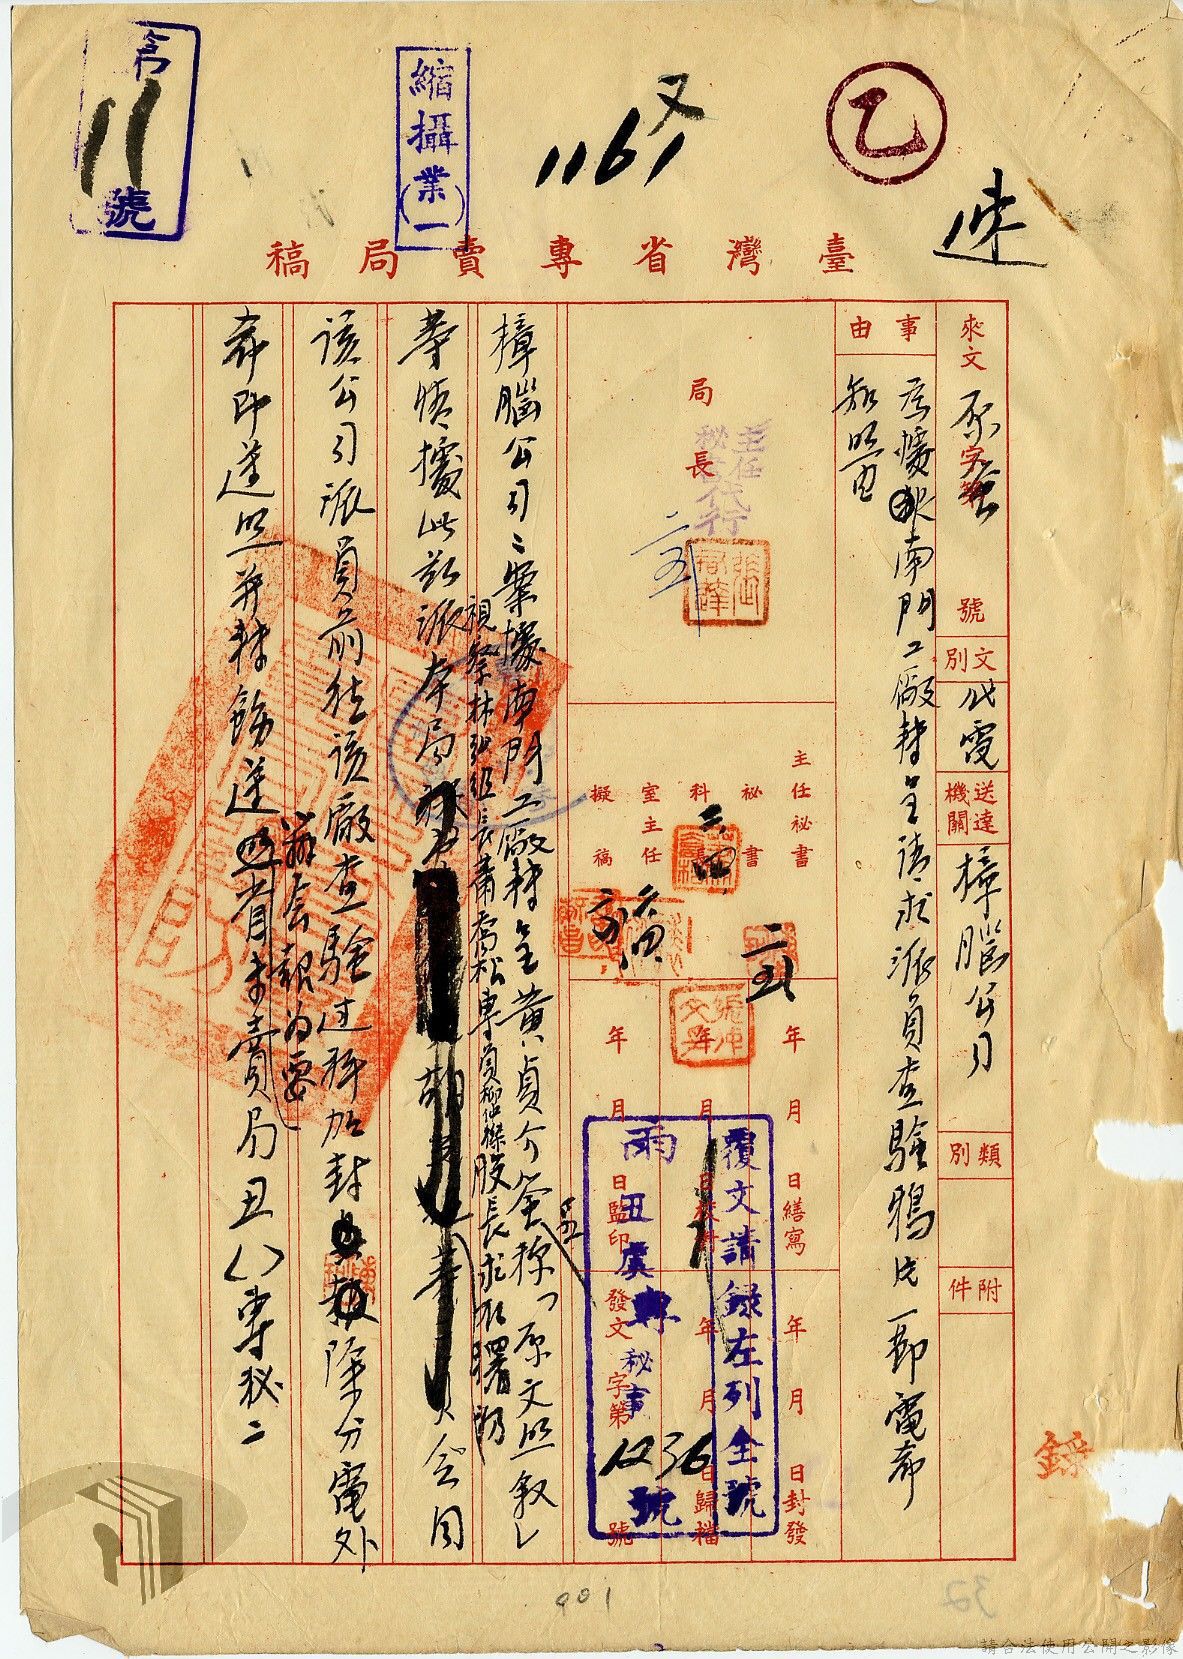 第
11
號
縮攝業(一)
又
1161
乙
速
臺灣省專賣局稿
來文
字第
號
文別
代電
送達機關
樟腦公司
類別
附件
事由
為據南門工廠轉呈請求派員查驗鴉片一節電希
知照由
局長
主任秘書代行
二五
主任秘書
秘書
科
室主任
擬稿
年月日繕寫
年月日校對
年月日監印
年月日封發
年月日歸檔
發文字第號
覆文請錄左列全號
丑虞專秘
1236
號
樟腦公司:案據南門工廠轉呈黃貞介簽稱「原文照敘」
等情據此茲派本局
視察林組長蕭喬松專員股長求
會同
該公司派員前往該廠查驗過秤加封
除分電外
希即遵照并轉飭遵照
辦会報為要
省專賣局丑八專秘二
001
請合法使用公開之影像